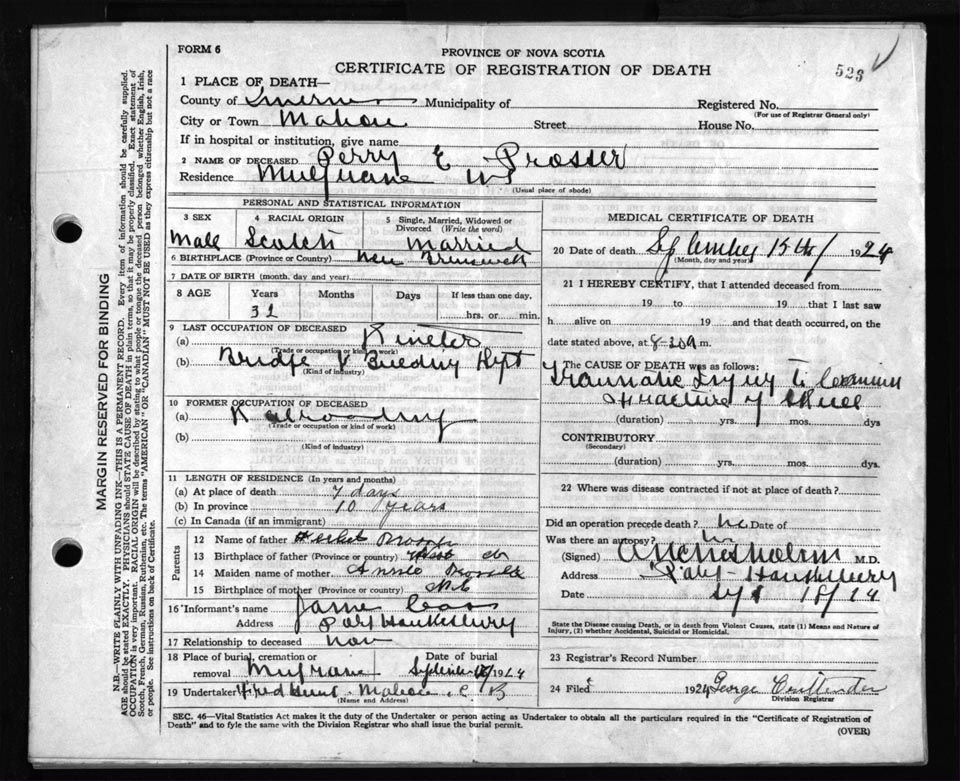 FORM 6
PROVINCE OF NOVA SCOTIA
CERTIFICATE OF REGISTRATION OF DEATH
523
1 PLACE OF DEATH—
County of Inverness Municipality of Registered No.
(For use of Registrar General only)
City or Town Mabou Street House No.
If in hospital or institution, give name
2 NAME OF DECEASED Perry E Prosser
Residence Mulgrave NS
(Usual place of abode)
PERSONAL AND STATISTICAL INFORMATION
3 SEX 4 RACIAL ORIGIN 5 Single, Married, Widowed or Divorced (Write the word)
Male Scotch Married
6 BIRTHPLACE (Province or Country) New Brunswick
7 DATE OF BIRTH (month, day and year)
8 AGE Years Months Days If less than one day,
32 hrs. or min.
9 LAST OCCUPATION OF DECEASED
(a)
(Trade or occupation or kind of work)
(b) Bridge & Building Dept
(Kind of industry)
10 FORMER OCCUPATION OF DECEASED
(a) Railroading
(Trade or occupation or kind of work)
(b)
(Kind of industry)
11 LENGTH OF RESIDENCE (In years and months)
(a) At place of death 7 days
(b) In province 10 years
(c) In Canada (if an immigrant)
Parents
12 Name of father
13 Birthplace of father (Province or country)
14 Maiden name of mother Annie
15 Birthplace of mother (Province or country) N.B.
16 Informant's name
Address Port Hawkesbury
17 Relationship to deceased
18 Place of burial, cremation or removal Mulgrave Date of burial September 1924
19 Undertaker Mabou C B
(Name and Address)
MEDICAL CERTIFICATE OF DEATH
20 Date of death September 15th 1924
(Month, day and year)
21 I HEREBY CERTIFY, that I attended deceased from
19 to 19 that I last saw
h alive on 19 and that death occurred, on the
date stated above, at 8-30 a m.
The CAUSE OF DEATH was as follows:
Traumatic Injury to
Fracture of Skull
(duration) yrs. mos. dys
CONTRIBUTORY
(Secondary)
(duration) yrs. mos. dys.
22 Where was disease contracted if not at place of death?
Did an operation precede death? no Date of
Was there an autopsy? no
(Signed) M.D.
Address Port Hawkesbury
Date Sept 18/24
State the Disease Causing Death, or in death from Violent Causes, state (1) Means and Nature of Injury, (2) whether Accidental, Suicidal or Homicidal.
23 Registrar's Record Number
24 Filed 1924 George
Division Registrar
SEC. 46—Vital Statistics Act makes it the duty of the Undertaker or person acting as Undertaker to obtain all the particulars required in the "Certificate of Registration of
Death" and to fyle the same with the Division Registrar who shall issue the burial permit.
(OVER)
MARGIN RESERVED FOR BINDING
N.B.—WRITE PLAINLY WITH UNFADING INK—THIS IS A PERMANENT RECORD. Every item of information should be carefully supplied.
AGE should be stated EXACTLY. PHYSICIANS should STATE CAUSE OF DEATH in plain terms, so that it may be properly classified. Exact statement of
OCCUPATION is very important. RACIAL ORIGIN will be described by stating to what people or tongue the deceased person belonged whether English, Irish,
Scotch, French, German, Russian, Ruthenian, etc. The terms "AMERICAN" OR "CANADIAN" MUST NOT BE USED as they express citizenship but not a race
or people. See instructions on back of Certificate.